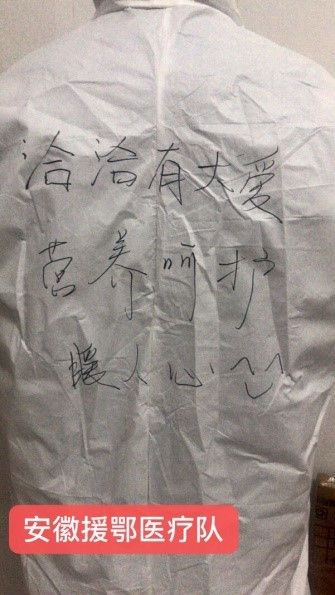 洽洽有大爱
营养呵护
暖人心
安徽援鄂医疗队